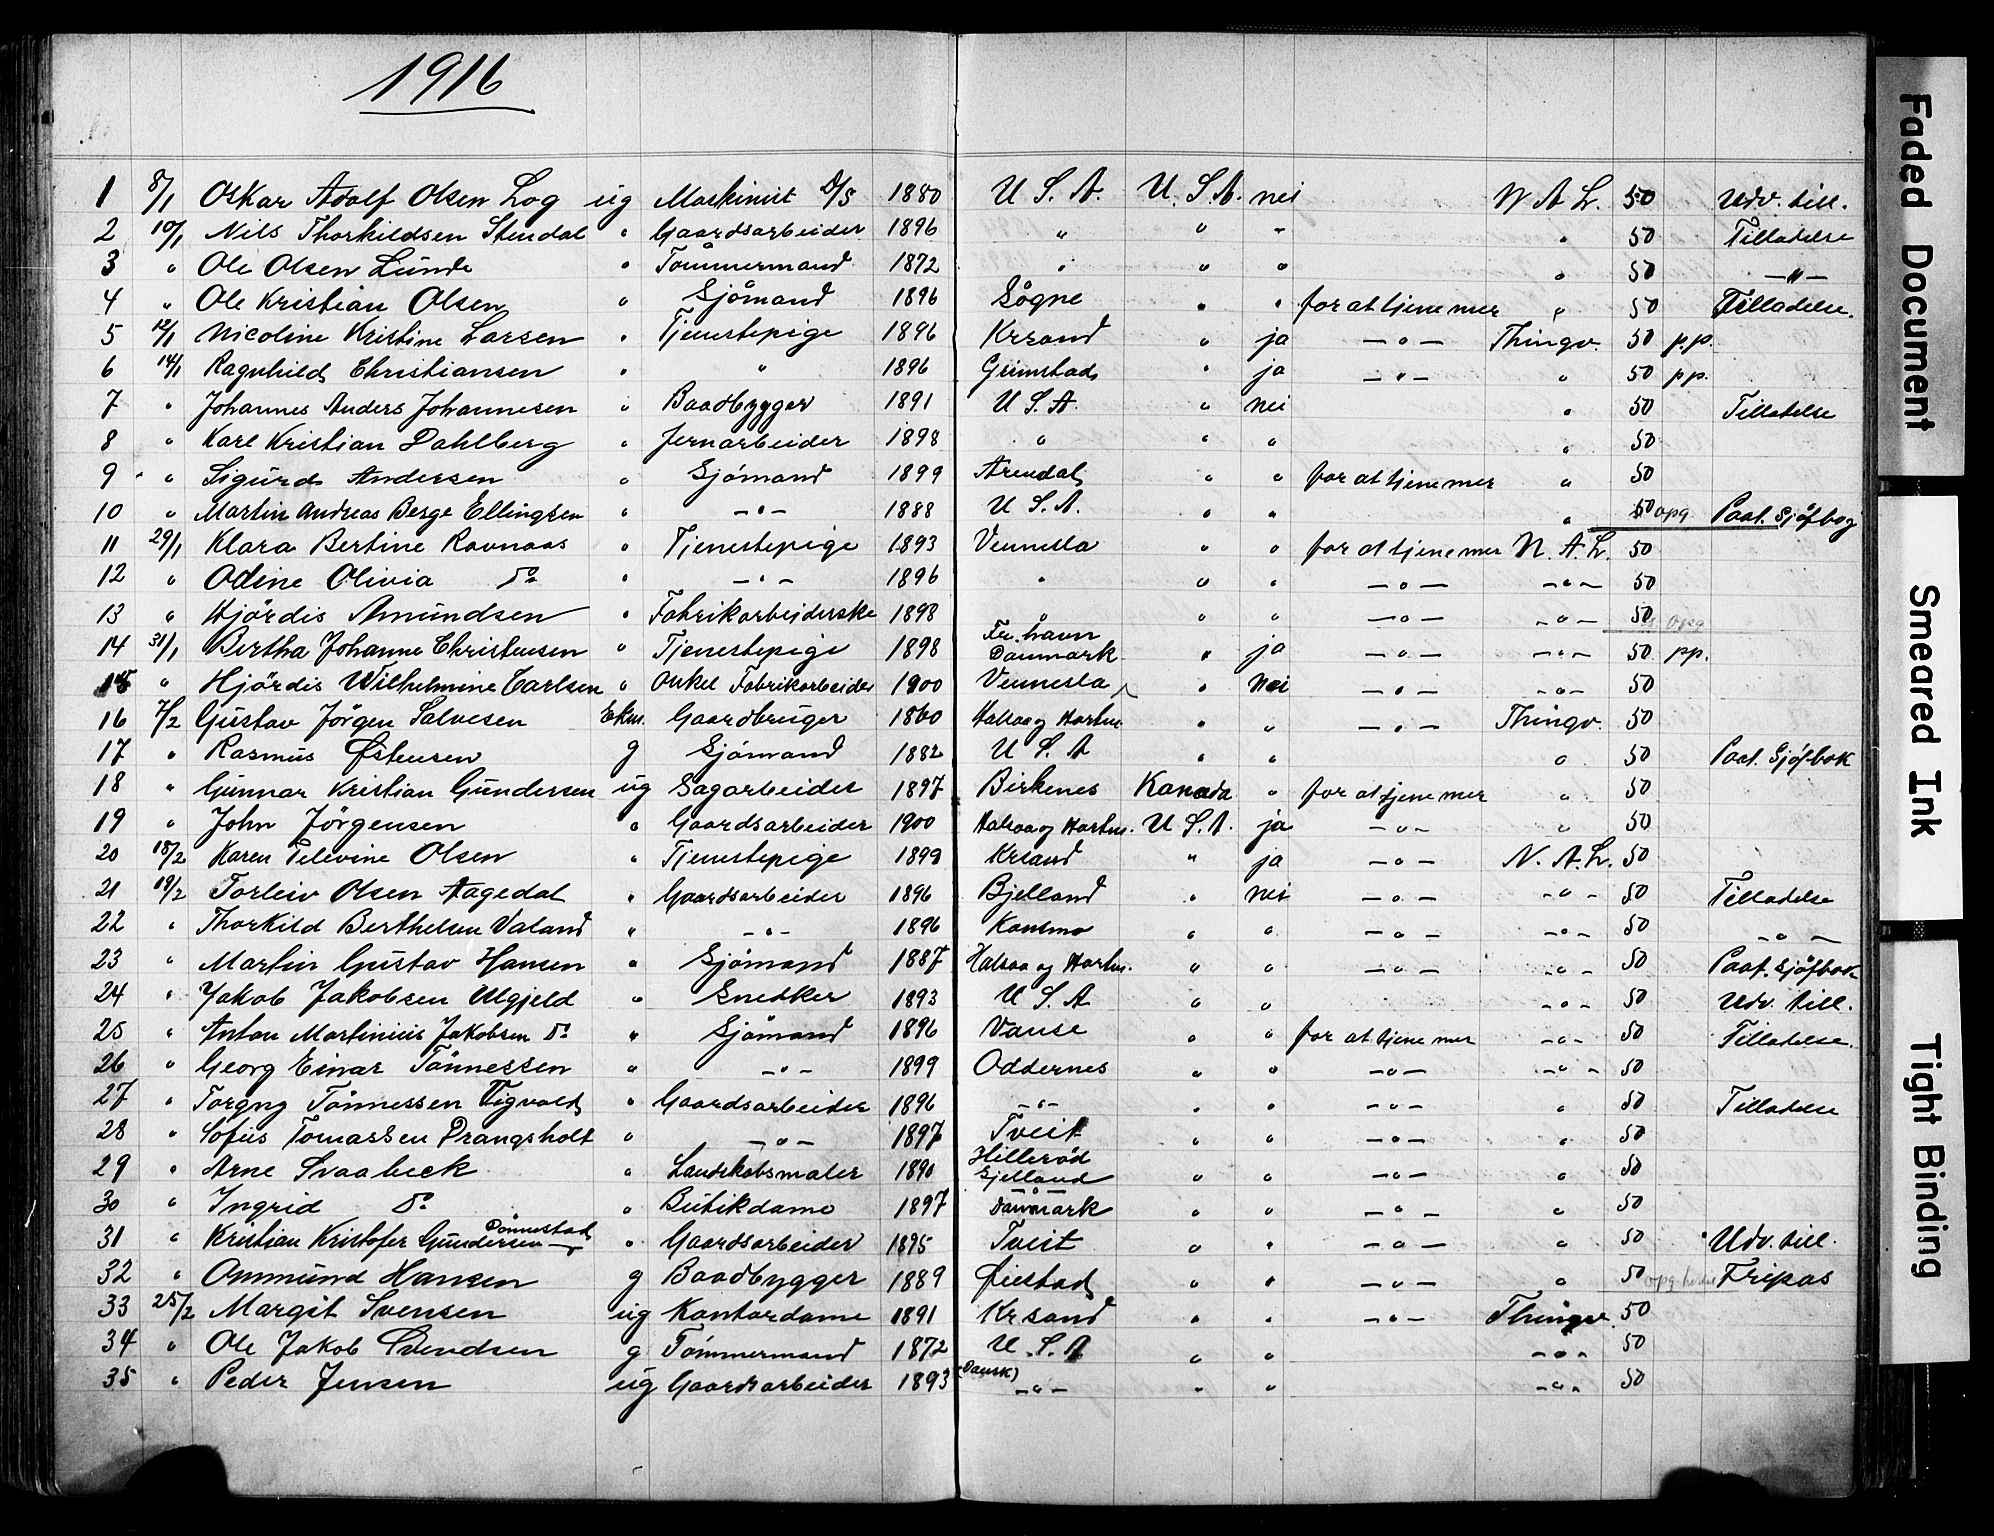 1916
1 8/1 Oskar Adolf Olsen Log ug Maskinist D/S 1880 U. S. A. U. S. A. nei N A L. 50 Udv. till.
2 10/1 Nils Thorkildsen Stendal " Gaardsarbeider 1896 " " " " 50 Tilladelse
3 " Ole Olsen Lunde " Tömmermand 1872 " " " " 50 —"—
4 " Ole Kristian Olsen " Sjömand 1896 Sögne " " for at tjene mer " 50 Tilladelse.
5 12/1 Nicoline Kristine Larsen " Tjenestepige 1896 Krsand " ja —"— Thingv. 50 p.p.
6 14/1 Ragnhild Christiansen " " 1896 Grimstad " ja —"— " 50 pp.
7 " Johannes Anders Johannesen " Baadbygger 1891 U S A. " nei " 50 Tilladelse
8 " Karl Kristian Dahlberg " Jernarbeider 1898 " " " " 50
9 " Sigurd Andersen " Sjömand 1899 Arendal " " for at tjene mer " 50
10 " Martin Andreas Berge Ellingsen " —"— 1888 U S. A. " " " 50 opg Paat. Sjöfbog
11 29/1 Klara Bertine Ravnaas " Tjenestepige 1893 Vennesla " " for at tjene mer N. A. L. 50
12 " Odine Olivia do " —"— 1896 " " " —"— —"— 50
13 " Hjördis Amundsen " Fabrikarbeiderske 1898 " " " —"— —"— 50 opg
14 31/1 Bertha Johanne Christensen " Tjenestepige 1898 Fr. havn Danmark " ja —"— —"— 50 pp.
15 " Hjördis Wilhelmine Carlsen " Onkel Fabrikarbeider 1900 Vennesla " nei —"— —"— 50
16 7/2 Gustav Jörgen Salvesen Ekm. Gaardbruger 1860 Halsaa og Hartm. " " —"— Thingv. 50
17 " Rasmus Østensen g Sjömand 1882 U S. A " " " 50 Paat. Sjöfbok
18 " Gunnar Kristian Gundersen ug Sagarbeider 1897 Birkenes Kanada " for at tjene mer " 50
19 " John Jörgensen " Gaardsarbeider 1900 Halsaa og Hartm. U. S. A. ja —"— " 50
20 18/2 Karen Televine Olsen " Tjenestepige 1899 Krsand " ja —"— N. A. L. 50
21 19/2 Torleiv Olsen Aagedal " Gaardsarbeider 1896 Bjelland " nei —"— —"— 50 Tilladelse
22 " Thorkild Berthelsen Valand " —"— 1896 Konsmo " " —"— —"— 50 —"—
23 " Martin Gustav Hansen " Sjömand 1887 Halsaa og Hartm. " " —"— —"— 50 Paat. Sjöfbok
24 " Jakob Jakobsen Ulgjeld " Snedker 1893 U. S. A " " —"— 50 Udv. till.
25 " Anton Martinius Jakobsen do " Sjömand 1896 Vanse " " for at tjene mer —"— 50 Tilladelse.
26 " Georg Einar Tönnessen " —"— 1899 Oddernes " " —"— —"— 50
27 " Torgny Tönnessen Tigvold " Gaardsarbeider 1896 —"— " " —"— " 50 Tilladelse
28 " Sofus Tomassen Drangsholt " —"— 1897 Tveit " " —"— " 50
29 " Arne Svaabeck " Landskabsmaler 1890 Hilleröd Sjelland " " —"— " 50
30 " Ingrid do " Butikdame 1897 —"— Danmark " " —"— " 50
31 " Kristian Kristofer Gundersen Dönnestad " Gaardsarbeider 1895 Tveit " " —"— " 50 Udv. till.
32 " Ommund Hansen g Baadbygger 1889 Øiestad " " —"— " 50 Fripas
33 25/2 Margit Svensen ug Kontordame 1891 Krsand " " —"— Thingv. 50
34 " Ole Jakob Svendsen g Tömmermand 1872 U. S. A " " —"— 50
35 " Peder Jensen ug Gaardsarbeider 1893 (Dansk) —"— " " —"— 50
Faded Document
Smeared Ink
Tight Binding